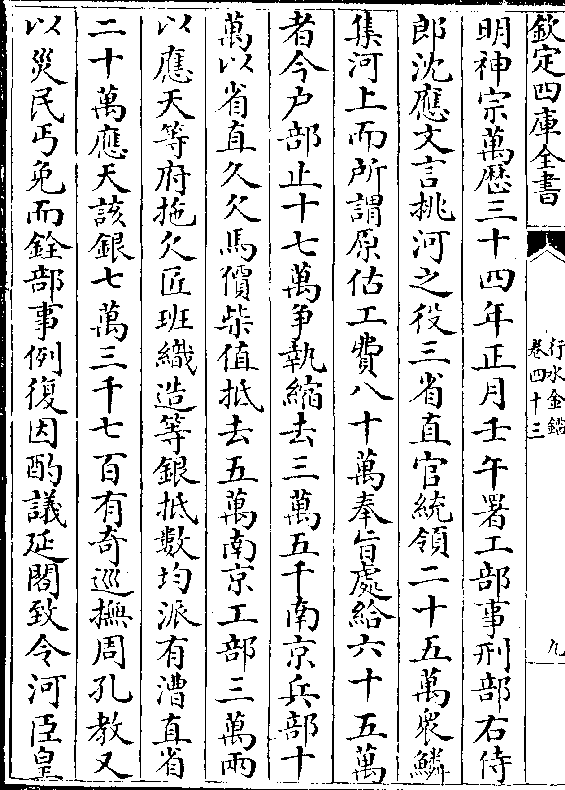 欽定四庫全書
行水金鑑
卷四十三
九
明神宗萬歷三十四年正月壬午署工部事刑部右侍
郎沈應文言挑河之役三省直官統領二十五萬衆鱗
集河上而所謂原估工費八十萬奉旨處給六十五萬
者今户部止十七萬争執縮去三萬五千南京兵部十
萬以省直久欠馬價柴值抵去五萬南京工部三萬兩
以應天等府拖欠匠班織造等銀抵數均派有漕直省
二十萬應天該銀七萬三千七百有奇巡撫周孔教又
以災民丐免而銓部事例復因酌議延閣致令河臣皇